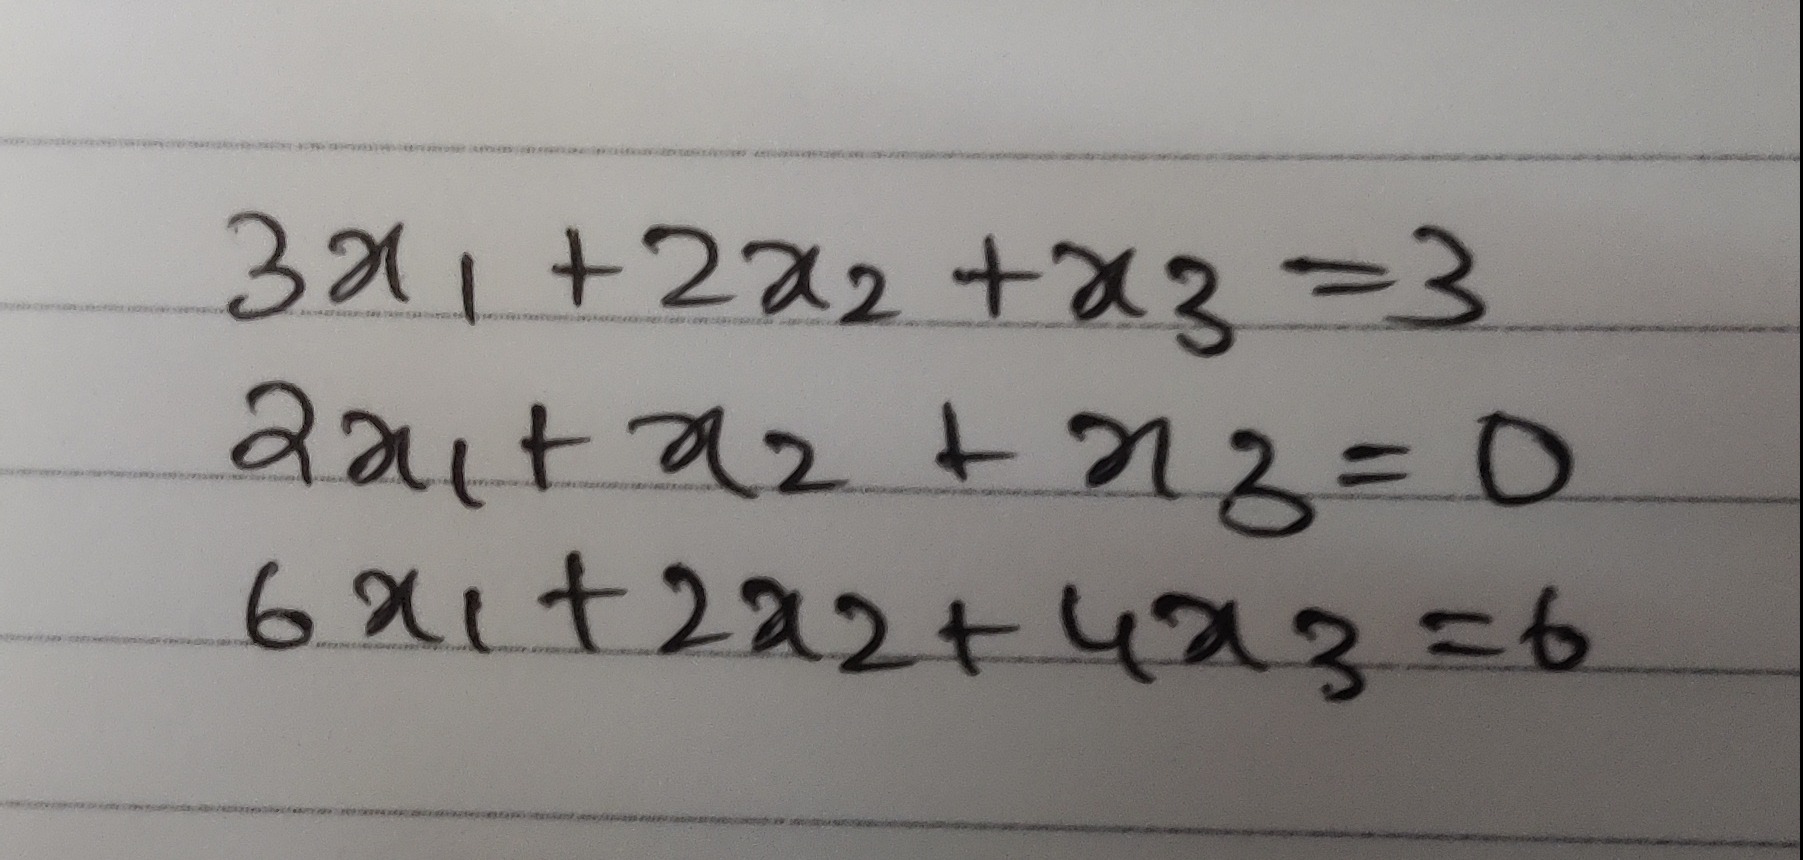 3x₁ + 2x₂ + x₃ = 3
2x₁ + x₂ + x₃ = 0
6x₁ + 2x₂ + 4x₃ = 6